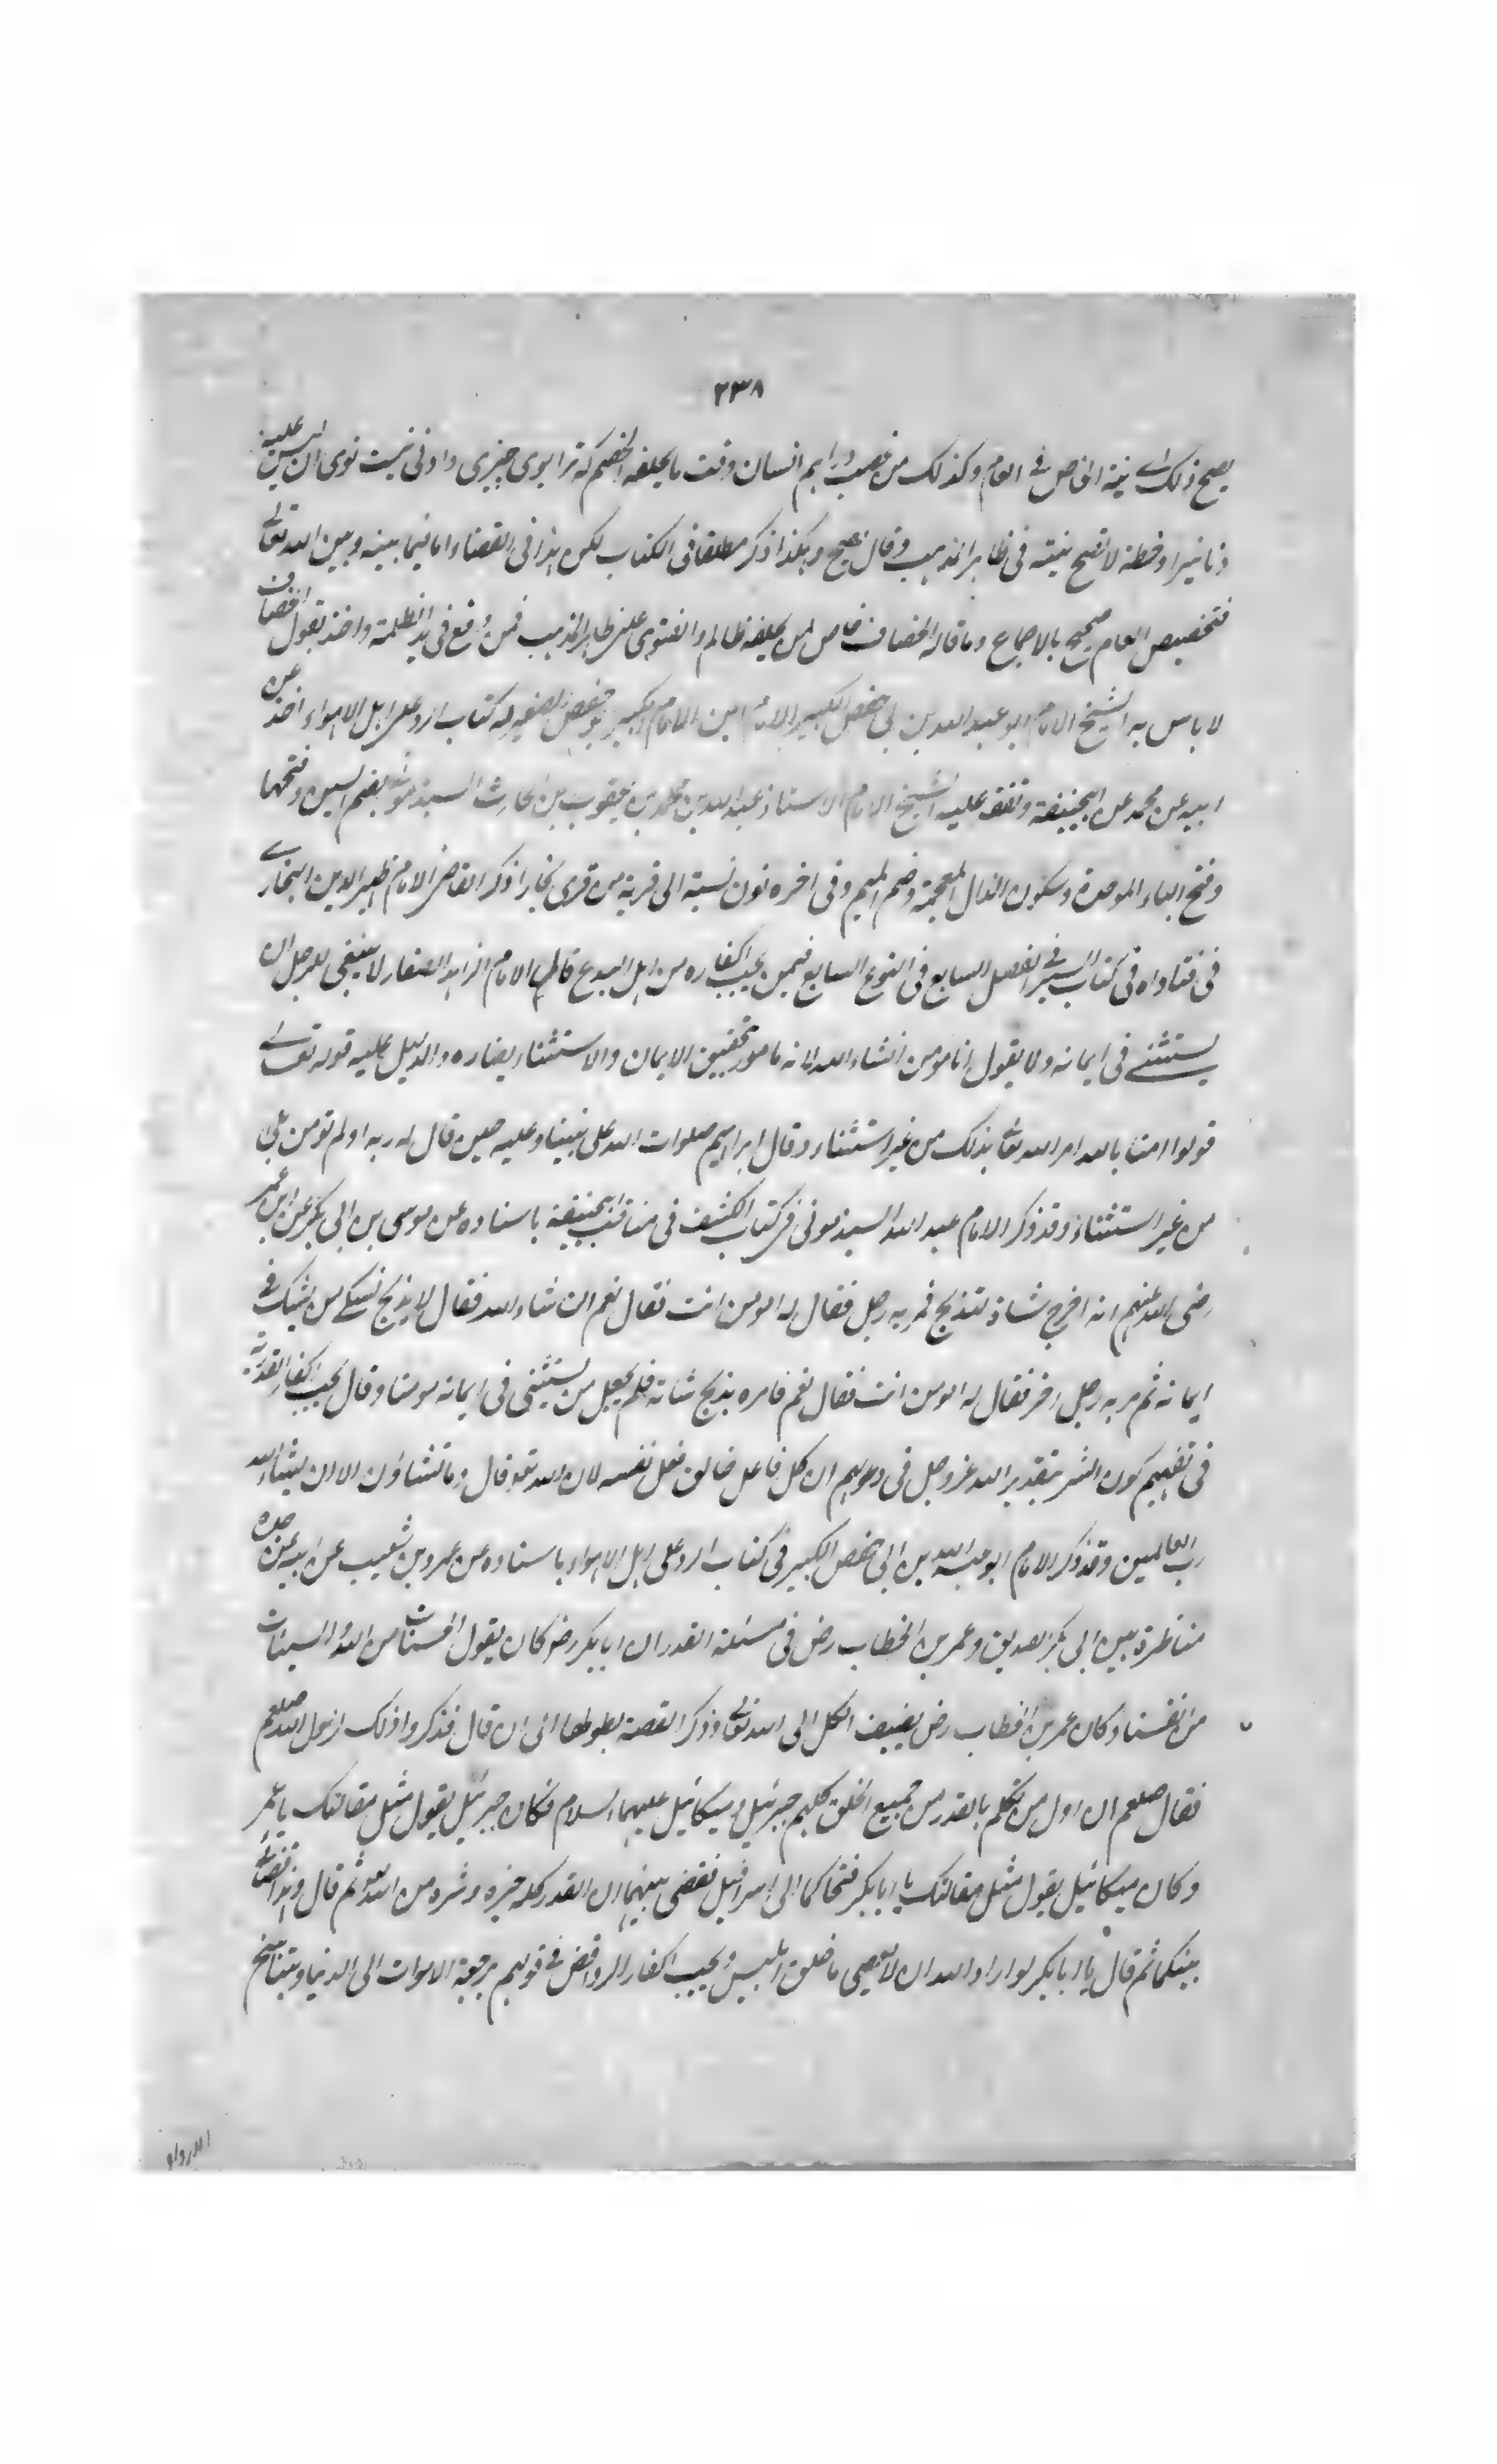 ٢٣٨
يصح ذلك اے نية الخاص فے العام وكذلك من غصب دراهم انسان وقت ما يحلفه الخصم كه ترا بوى چيزى دادنى نيست نوى ان ليس عليه
دنانيرا وخطة لا تصح نيته فى ظاهر المذهب وقال يصح وهكذا ذكر مطلقا فى الكتاب لكن هذا فى القضاء اما فيما بينه وبين الله تعالے
فتخصيص العام صحيح بالاجماع وما قاله الخصاف خاص لمن يحلفه ظالم والفتوى على ظاهر المذهب فمن وقع فى يد الظلمة واخذ بقول الخصاف
لا باس به الشيخ الامام ابو عبد الله بن ابى حفص الكبير الامام ابن الامام الكبير حفص الصغير له كتاب الرد على اهل الاهواء اخذ عن
ابيه عن محمد عن ابيحنيفة وتفقه عليه الشيخ الامام الاستاذ عبد الله بن محمد بن يعقوب بن الحارث السبذمونى بضم السين وفتحها
وفتح الباء الموحدة وسكون الذال المعجمة وضم الميم وفى اخره نون نسبة الى قرية من قرى بخارا ذكر القاضى الامام ظهير الدين البخارے
فى فتاواه فى كتاب السير فے الفصل السابع فى النوع السابع فيمن يجب اكفاره من اهل البدع قال الامام الزاهد الصفار لا ينبغى للرجل ان
يستثنے فى ايمانه ولا يقول انا مومن انشاء الله لانه مامور بتحقيق الايمان والاستثناء يضاده والدليل عليه قوله تعالے
قولوا امنا بالله امر الله تعالے بذلك من غير استثناء وقال ابراهيم صلوات الله على نبينا وعليه حين قال له ربه اولم تومن بلى
من غير استثناء وقد ذكر الامام عبد الله السبذمونى فى كتاب الكشف فى مناقب ابيحنيفة باسناده عن موسى بن ابى بكر عن ابن عمر
رضى الله عنهم انه اخرج شاة لتذبح فمر به رجل فقال له امومن انت فقال نعم ان شاء الله فقال لا يذبح نسكے من يشك فے
ايمانه ثم مر به رجل اخر فقال له امومن انت فقال نعم فامره بذبح شاته فلم يجعل من يستثنى فى ايمانه مومنا وقال يجب اكفار القدرية
فى نفيهم كون الشر بتقدير الله عز وجل فى دعويهم ان كل فاعل خالق فعل نفسه لان الله تعه قال وما تشاؤن الا ان يشاء الله
رب العالمين وقد ذكر الامام ابو عبد الله بن ابى حفص الكبير فى كتاب الرد على اهل الاهواء باسناده عن عمرو بن شعيب عن ابيه عن جده
مناظرة بين ابى بكر الصديق وعمر بن الخطاب رض فى مسئلة القدر ان ابا بكر رضه كان يقول الحسنات من الله والسيئات
من انفسنا وكان عمر بن الخطاب رض يضيف الكل الى الله تعالے وذكر القصة بطولها الى ان قال فذكروا ذلك لرسول الله صلعم
فقال صلعم ان اول من تكلم بالقدر من جميع الخلق كلهم جبرئيل وميكائيل عليهما السلام فكان جبرئيل يقول مثل مقالتك يا عمر
وكان ميكائيل يقول مثل مقالتك يا ابا بكر فتحاكما الى اسرافيل فقضى بينهما ان القدر كله خيره وشره من الله تعه ثم قال وهذا قضائے
بينكما ثم قال يا ابا بكر لو اراد الله ان لا يعصى ما خلق ابليس ويجب اكفار الروافض فے قولهم برجعة الاموات الى الدنيا وبتناسخ